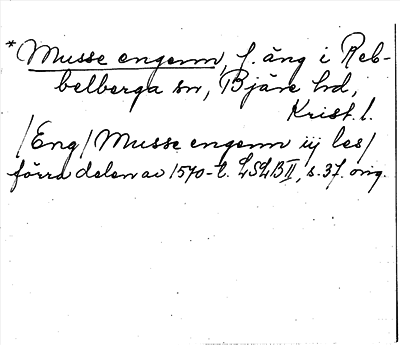 *Musse engenn, f. äng i Reb-
belberga sn, Bjäre hd,
Krist. l.
/Eng/ Musse engenn iij les/
förra delen av 1570-t. LSLB II, s. 37. orig.